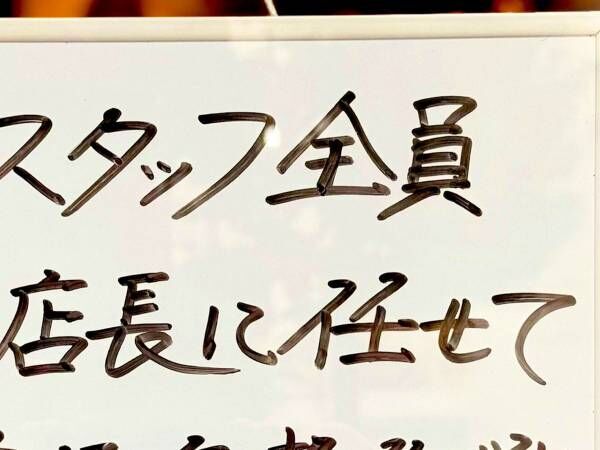 スタッフ全員
店長に任せて